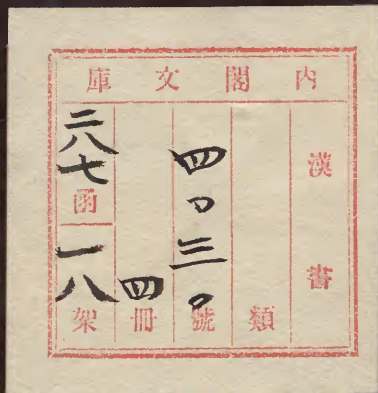 内閣文庫
漢書
類
四〇三〇號
四冊
二八七函
一八架